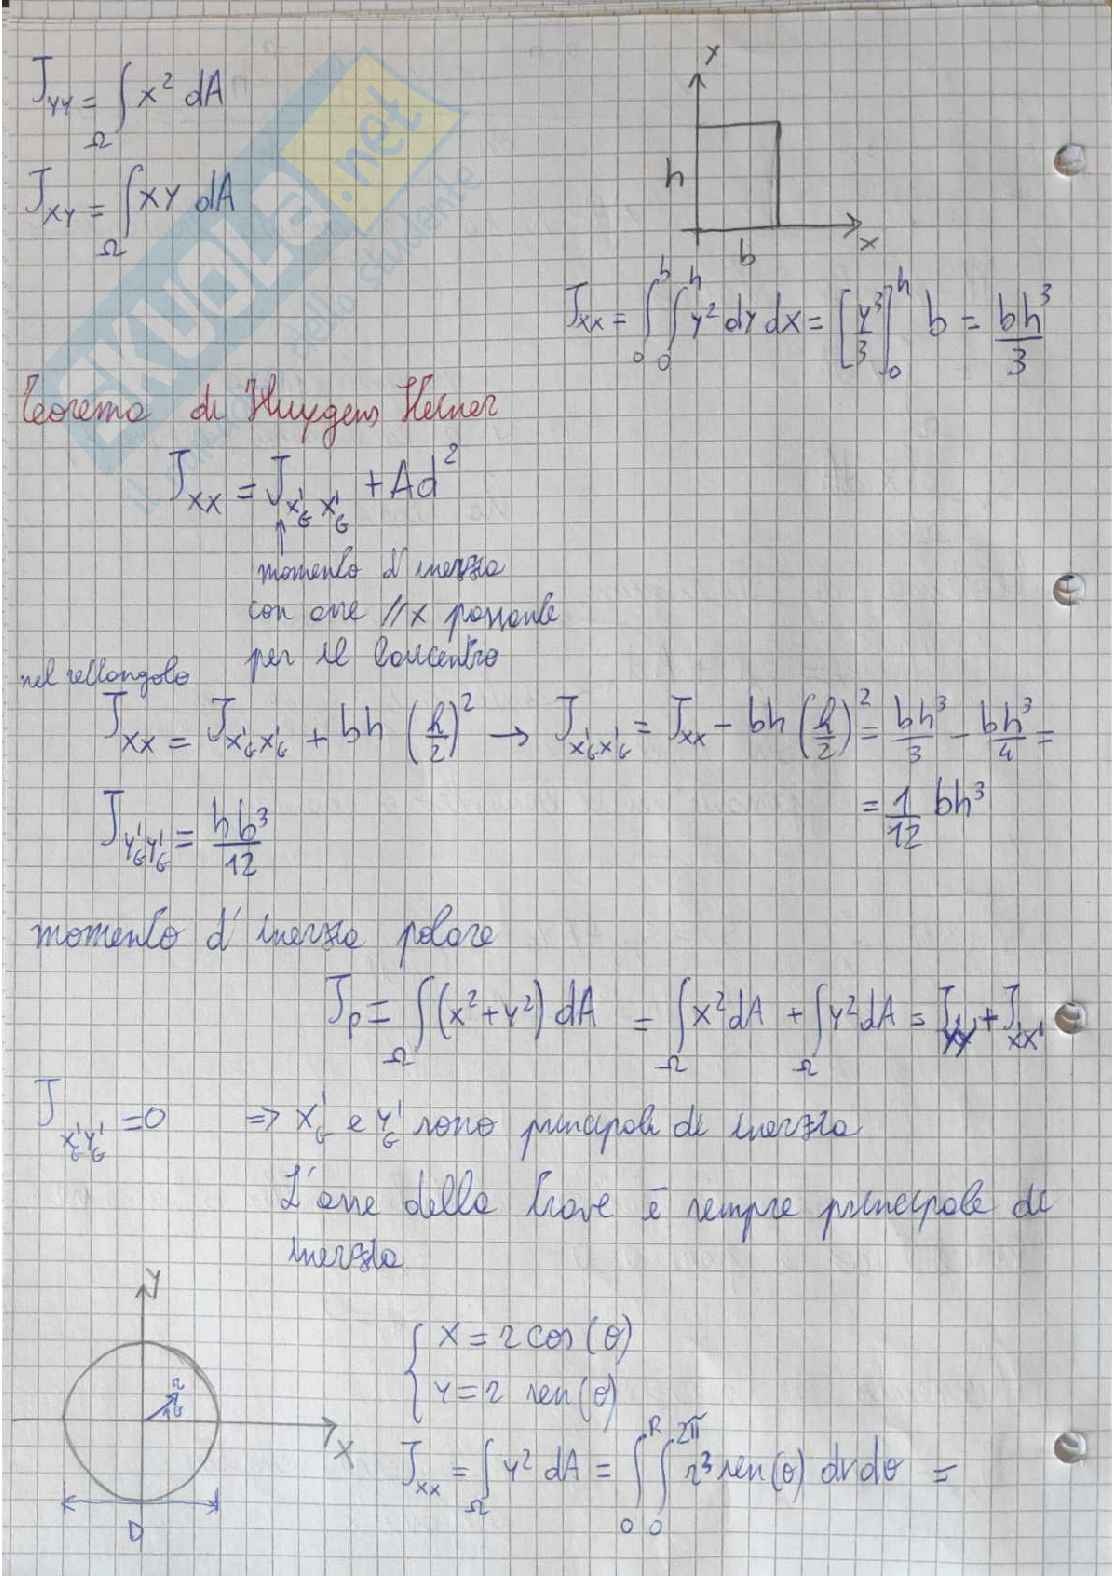 J_YY = ∫_Ω x² dA
J_XY = ∫_Ω XY dA
x
h
b
x
J_xx = ∫_0^b ∫_0^h y² dy dx = [y³/3]_0^h b = bh³/3
SKUOLa.net
Teorema di Huygens Steiner
J_XX = J_x'G x'G + Ad²
↑
momento d'inerzia
con asse // x passante
per il baricentro
nel rettangolo
J_XX = J_x'G x'G + bh (h/2)² → J_x'G x'G = J_XX - bh (h/2)² = bh³/3 - bh³/4 =
= 1/12 bh³
J_Y'G Y'G = hb³/12
momento d'inerzia polare
J_P = ∫_Ω (x² + y²) dA = ∫_Ω x² dA + ∫_Ω y² dA = J_YY + J_XX
J_x'G Y'G = 0 ⇒ x'G e Y'G sono principali di inerzia
L'asse della trave è sempre principale di
inerzia
Y
r
θ
X
D
{ X = r cos(θ)
Y = r sen(θ)
J_XX = ∫_Ω y² dA = ∫_0^R ∫_0^2π r³ sen(θ) dr dθ =